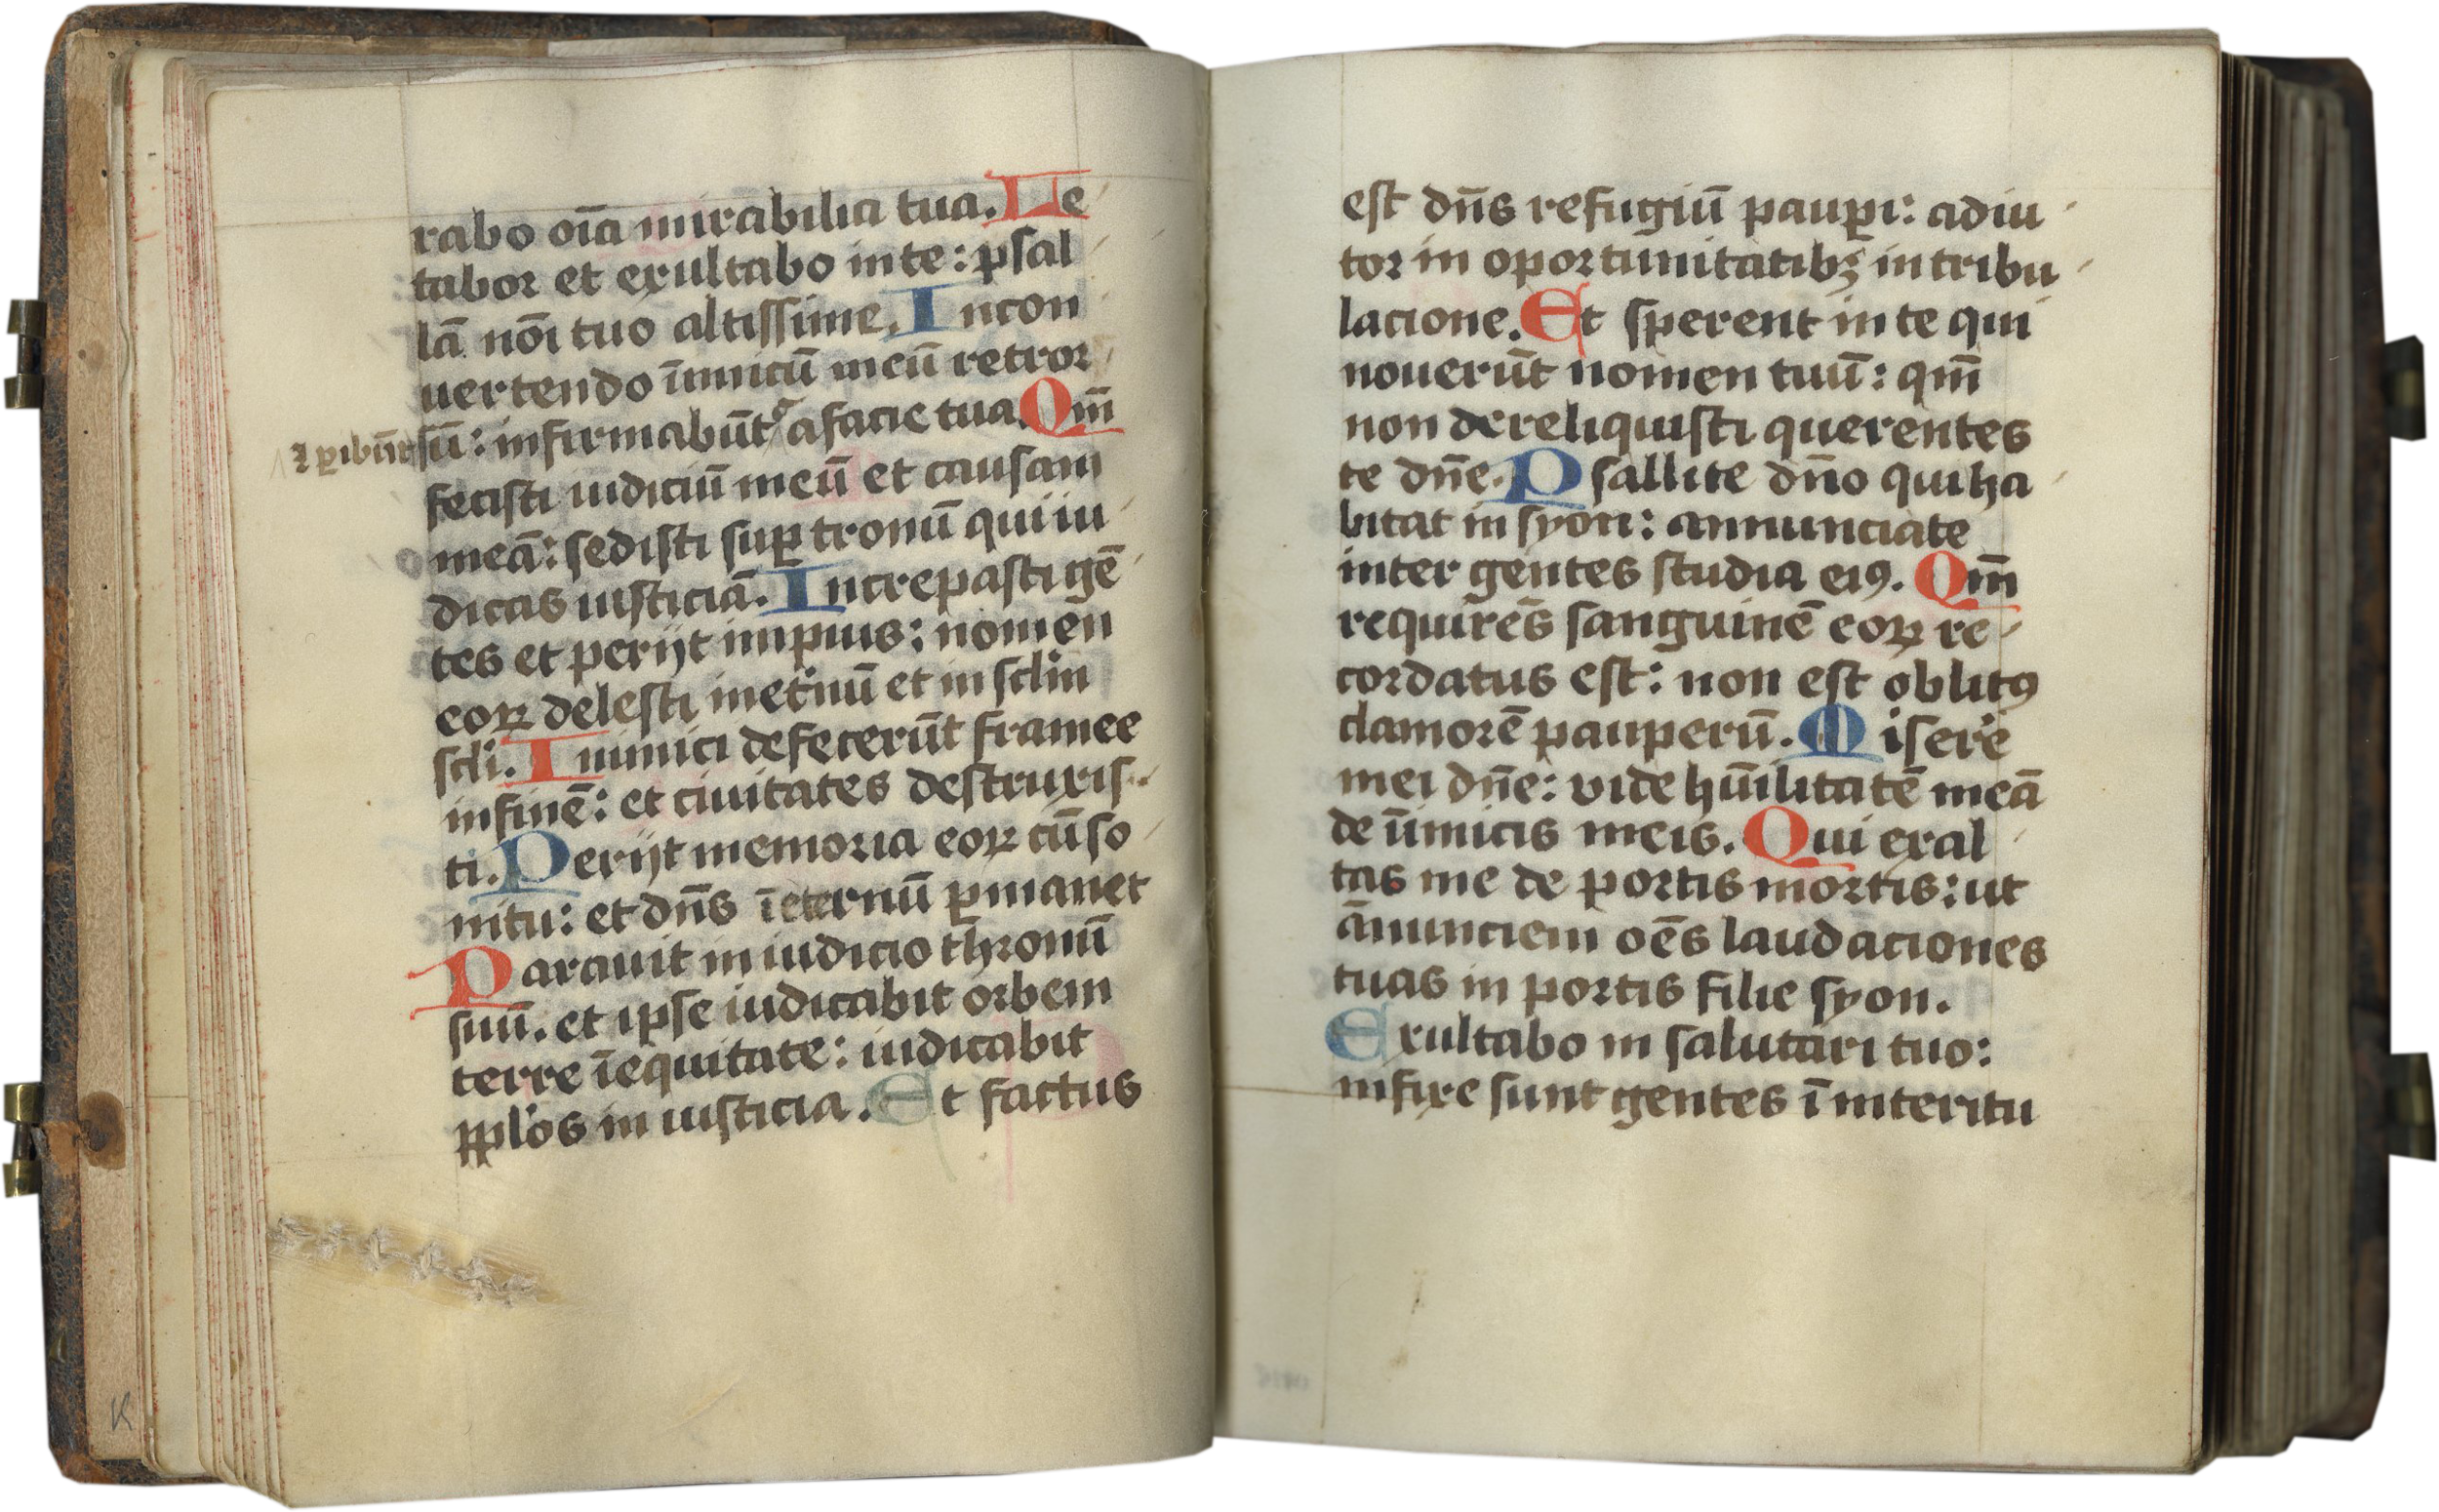 rabo oīa mirabilia tua. Le
tabor et exultabo in te: psal
lā nōi tuo altissime. Incon
uertendo īimicū meū retror
⁊ ꝑibūt sū: infirmabūt a facie tua. Qm̄
fecisti iudiciū meū et causam
meā: sedisti suꝑ tronū qui iu
dicas iusticiā. Increpasti gē
tes et perijt impius: nomen
eoꝝ delesti inet'nū et in sclm
scli. Inimici defecerūt framee
in finē: et ciuitates destruxis-
ti. Perijt memoria eoꝝ cū so
nitu: et dn̄s ī eternū ꝑmanet
Parauit in iudicio thronū
suū. et ipse iudicabit orbem
terre ī equitate: iudicabit
ppl'os in iusticia. Et factus
est dn̄s refugiū pauꝑi: adiu
tor in oportunitatibꝫ in tribu
lacione. Et sperent in te qui
nouerūt nomen tuū: qm̄
non dereliquisti querentes
te dn̄e. Psallite dn̄o qui ha
bitat in syon: annunciate
inter gentes studia eiꝰ. Qm̄
requirēs sanguinē eoꝝ re-
cordatus est: non est oblitꝰ
clamorē pauperū. Misere
mei dn̄e: vide hūilitatē meā
de īimicis meis. Qui exal
tas me de portis mortis: ut
ānunciem oēs laudaciones
tuas in portis filie syon.
Exultabo in salutari tuo:
infixe sunt gentes ī interitu